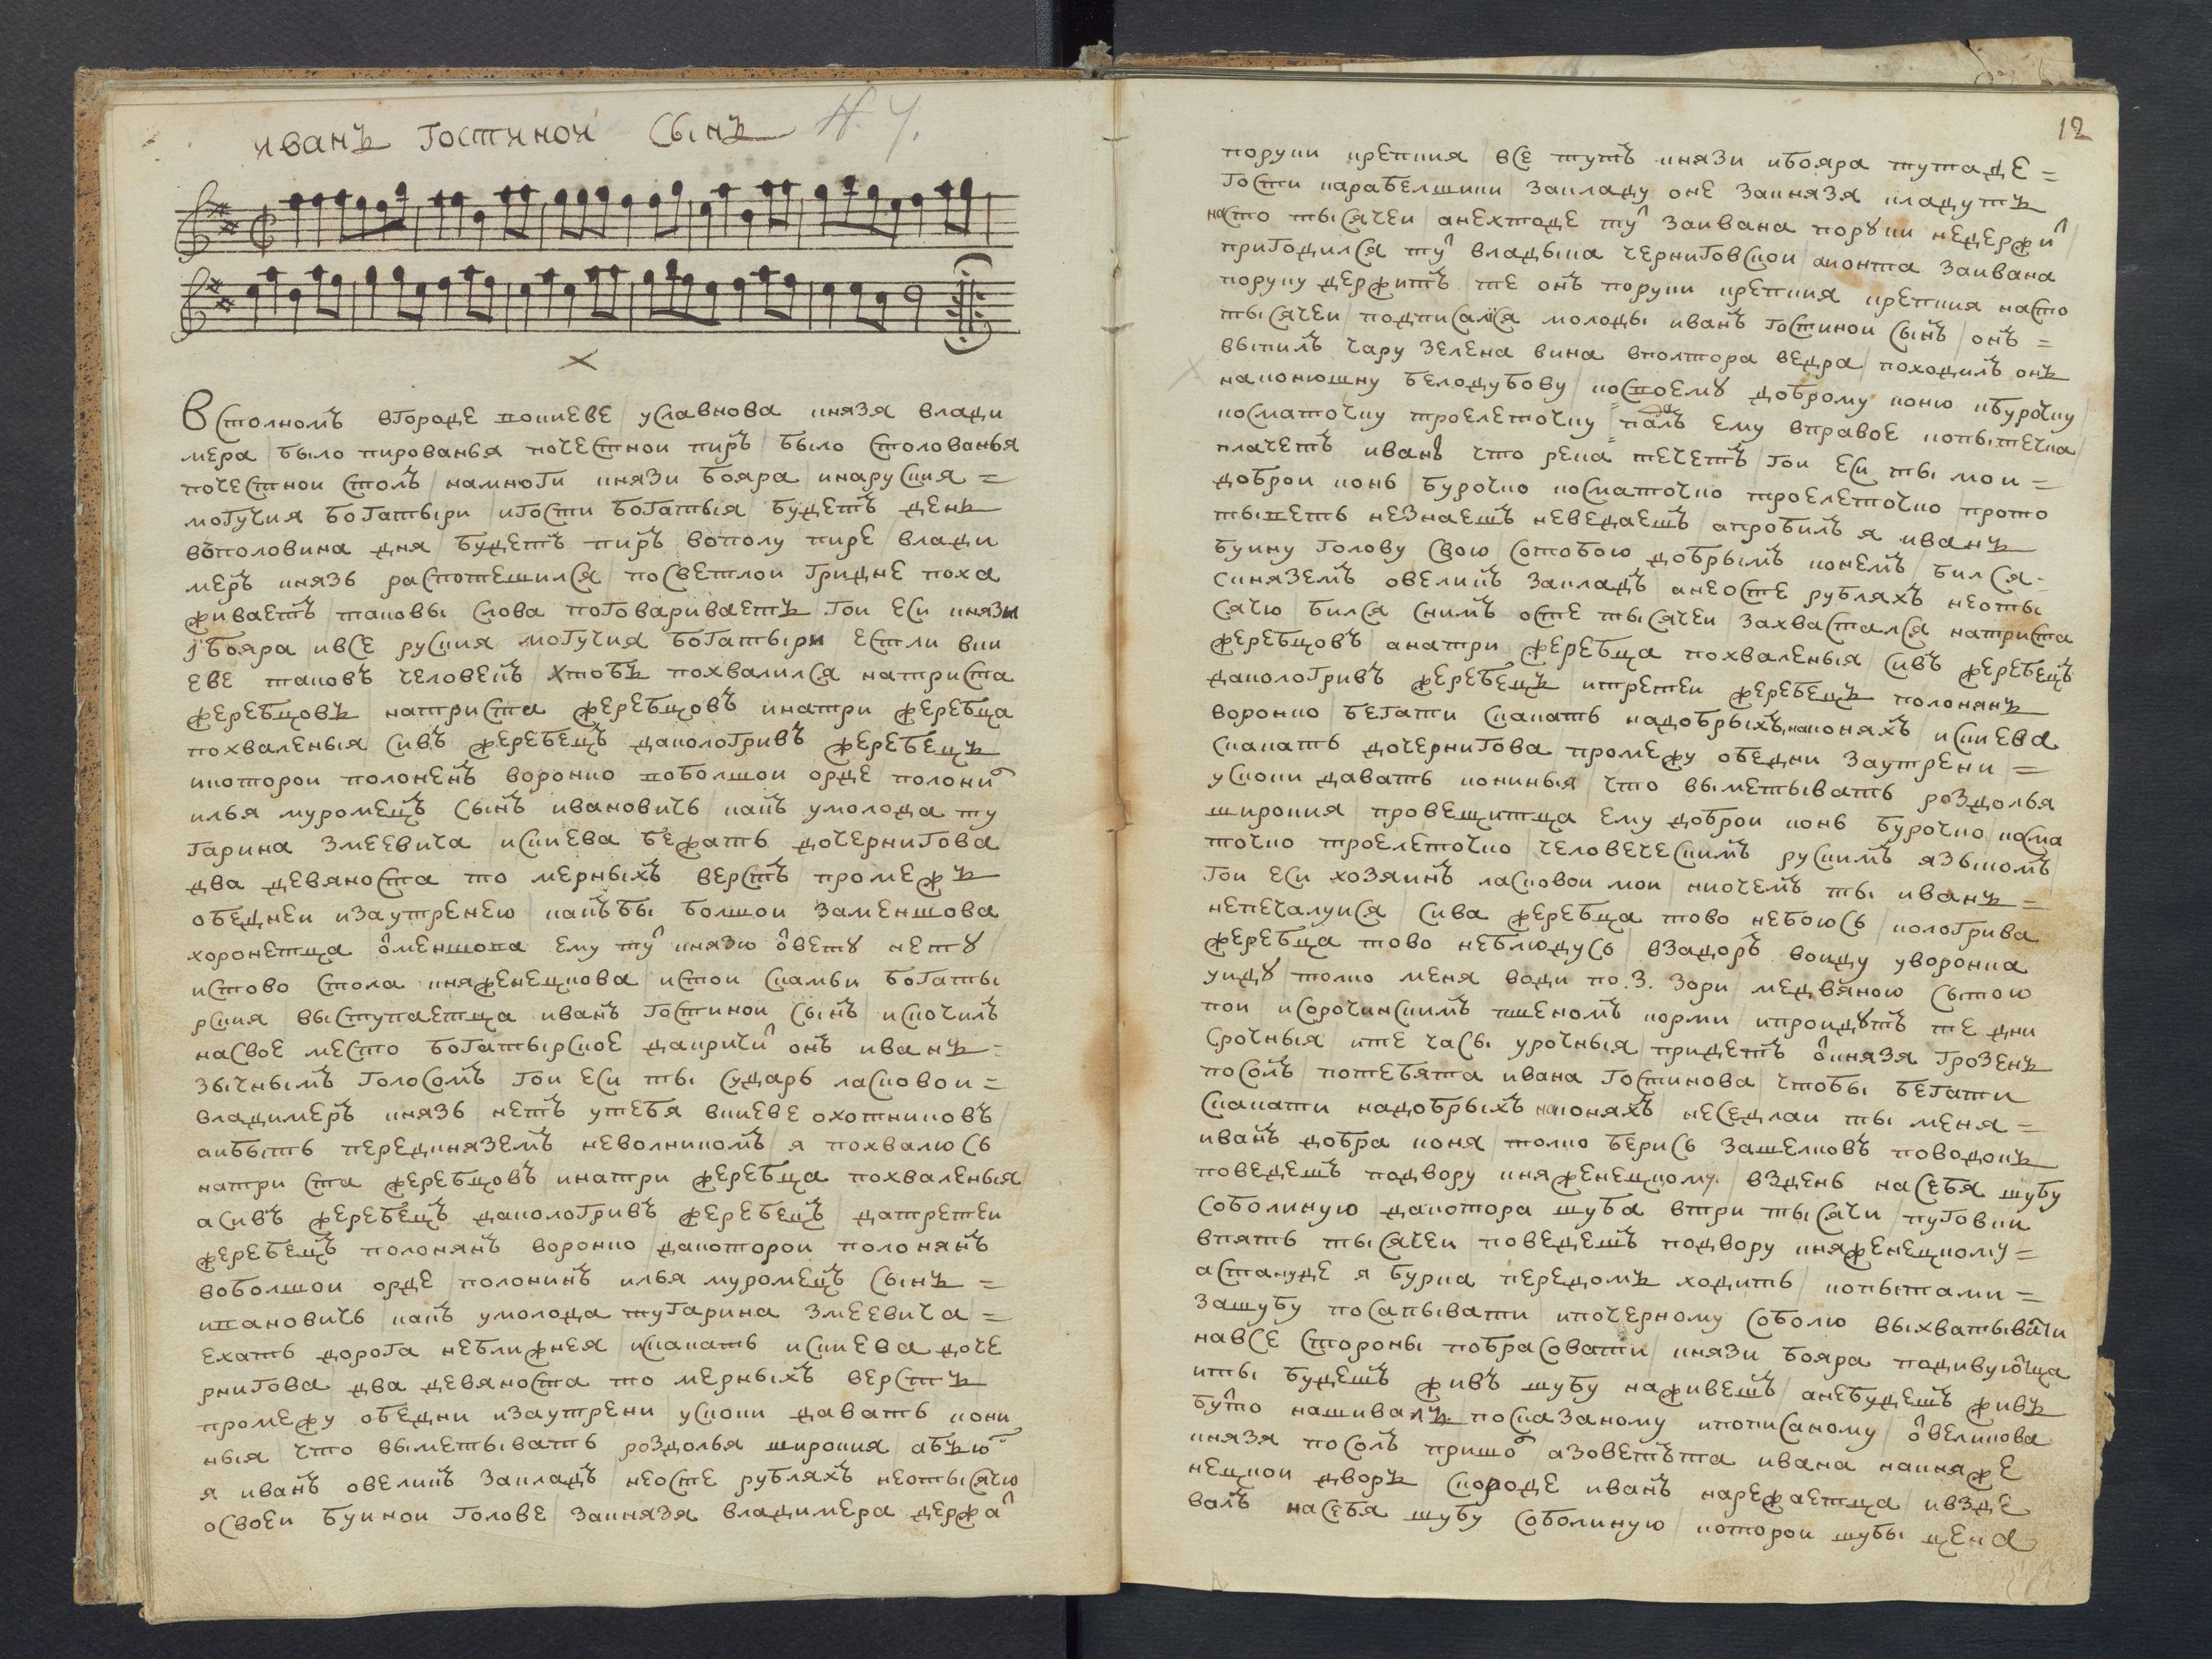 иванъ гостиной сынъ N. 7.
Встолномъ вгороде вокиеве уславнова князя влади
мера было пированья почестнои пиръ было столованья
почестнои столъ намноги князи бояра инаруския =
могучия богатыри игости богатыя будетъ день
въполовина дня будетъ пиръ вополу пире влади
меръ князь распотешился посветлои гридне поха
живаетъ таковы слова поговариваетъ гои еси князи
ибояра ивсе руския могучия богатыри естли вки
еве таковъ человекъ хтобъ похвалился натриста
жеребцовъ натриста жеребцовъ инатри жеребца
похваленыя сивъ жеребецъ дакологривъ жеребецъ
икоторои полоненъ воронко вобольшои орде полони
илья муромецъ сынъ ивановичь какъ умолода ту
гарина змеевича искиева бежать дочернигова
два девяноста то мерныхъ верстъ промежъ
обеднеи изаутренею какъбы болшои заменшова
хоронетца ѿменшова ему ту князю ѿвету нету
истово стола княженецкова истои скамьи богаты
рския выступаетца иванъ гостинои сынъ искочилъ
насвое место богатырское дакричи онъ иванъ =
зычнымъ голосомъ гои еси ты сударь ласковои =
владимеръ князь нетъ утебя вкиеве охотниковъ
аибыть передкняземъ неволникомъ я похвалюсь
натри ста жеребцовъ инатри жеребца похваленыя
асивъ жеребецъ дакологривъ жеребецъ датретеи
жеребецъ полонянъ воронко дакоторои полонянъ
воболшои орде полонинъ илья муромецъ сынъ =
ивановичь какъ умолода тугарина змеевича =
ехать дорога неближнея искакать искиева доче
рнигова два девяноста то мерныхъ верстъ
промежу обедни изаутрени ускоки давать кони
ныя что выметывать роздолья широкия абъю
я иванъ овеликъ закладъ неосте рубляхъ неотысячю
освоеи буинои голове закнязя владимера держа
12
поруки крепкия все тутъ князи ибояра тутаде =
гости карабелшики закладу оне закнязя кладутъ
насто тысячеи аниктоде ту заивана поруки недержи
пригодился ту владыка черниговскои аионта заивана
поруку держитъ те онъ поруки крепкия крепкия насто
тысячеи подписался молоды иванъ гостинои сынъ онъ =
выпилъ чару зелена вина вполтора ведра походилъ онъ
наконюшну белодубову косвоему доброму коню ибурочку
косматочку троелеточку палъ ему вправое копытечка
плачетъ иванъ что река течетъ гои еси ты мои =
доброи конь бурочко косматочко троелеточко прото
тыведь незнаешъ неведаешъ апробилъ я иванъ
буину голову свою сотобою добрымъ конемъ бился =
скняземъ овеликъ закладъ анеосте рубляхъ неоты
сячю бился снимъ осте тысячеи захвастался натриста
жеребцовъ анатри жеребца похваленыя сивъ жеребецъ
дакологривъ жеребецъ итретеи жеребецъ полонянъ
воронко бегати скакать надобрыхъ наконяхъ искиева
скакать дочернигова промежу обедни заутрени =
ускоки давать кониныя что выметывать роздолья
широкия провещитца ему доброи конь бурочко косма
точко троелеточко человеческимъ рускимъ языкомъ
гои еси хозяинъ ласковои мои ниочемъ ты иванъ =
непечалуися сива жеребца тово небоюсь кологрива
жеребца тово неблюдусь взадоръ воиду уворонка
уиду толко меня води по .3. зори медвяною сытою
пои исорочинскимъ пшеномъ корми ипроидутъ те дни
срочныя ите часы урочныя придетъ ѿкнязя грозенъ
посолъ потебята ивана гостинова чтобы бегати
скакати надобрыхъ наконяхъ неседлаи ты меня =
иванъ добра коня толко берись зашелковъ поводокъ
поведешъ подвору княженецкому вздень насебя шубу
соболиную дакотора шуба втри тысячи пуговки
впять тысячеи поведешъ подвору княженецкому =
астануде я бурка передомъ ходить копытами =
зашубу посапывати ипочерному соболю выхватывати
навсе стороны побрасовати князи бояра подивуютца
иты будешъ живъ шубу наживешъ анебудешъ живъ
буто нашивалъ посказаному ипописаному ѿвеликова
князя посолъ пришо азоветъта ивана накняже
нецкои дворъ скороде иванъ нарежаетца ивзде
валъ насебя шубу соболиную которои шубы цена